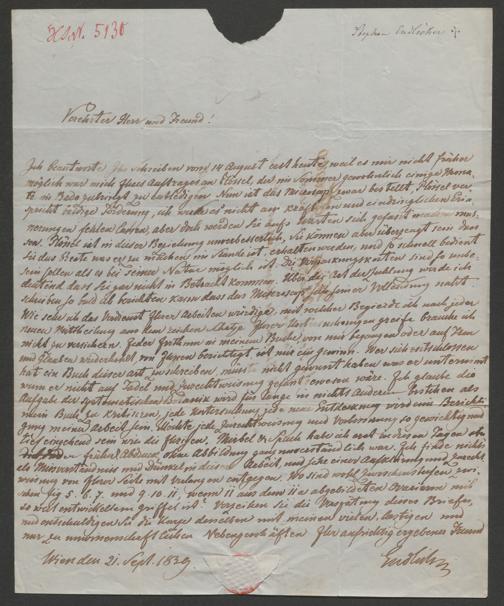 H.S.N. 5130
Stephan Endlicher
Verehrter Herr und Freund!
Ich beantworte Ihr Schreiben vom 14 August erst heute, weil es mir nicht früher
möglich war mich Ihres Auftrages an Plössel, der im Sommer gewöhnlich einige Mona-
te in Baden zubringt zu entledigen. Nun ist das Mikroskop zwar bestellt, Plössel ver-
spricht baldige Förderung, ich werde es nicht an und eindringlichen Er-
innerungen fehlen lassen, aber doch werden Sie aufs Warten sich gefasst machen müs-
sen. Plössel ist in dieser Beziehung unverbesserlich. Sie können aber überzeugt sein dass
Sie das Beste was er zu machen im Stande ist, erhalten werden, und so schnell bedient
sein sollen als es bei seiner Natur möglich ist. Die Verpackungskosten sind so unbe-
deutend dass sie gar nicht in Betracht kommen. Über die Art der Zahlung werde ich
schreiben so bald ich berichten kann dass das Mikroskop seiner Vollendung naht.
Wie sehr ich das Verdienst Ihrer Arbeiten würdige, mit welcher Begierde ich nach jeder
neuen Mittheilung aus dem reichen Schatze Ihrer Untersuchungen greife brauche ich
nicht zu versichern. Jeder Irrthum in meinem Buche, von mir begangen oder auf Treu
und Glauben wiederholt von Ihnen berichtigt ist mir ein Gewinn. Wer sich entschlossen
hat ein Buch dieser Art zu schreiben, müsste nicht gewusst haben was er unternimmt
wenn er nicht auf Tadel und Zurechtweisung gefasst gewesen wäre. Ich glaube die
Aufgabe der systematischen Botanik wird für lange in nichts Anderem bestehen als
mein Buch zu kritisiren, jede Untersuchung, jede neue Entdeckung wird eine Berichti-
gung meiner Arbeit sein. Möchte jede Zurechtweisung und Verbesserung so gewichtig und
tief eingehend sein wie die Ihrigen. Mirbel et Spach habe ich erst in diesen Tagen
früher Abdruck, ohne Abbildung ganz unverständlich war. Ich finde nichts
als Missverständniss und Dünkel in dieser Arbeit, und sehe einer
weisung von Ihrer Seite mit Verlangen entgegen. Wo sind wohl zwischen
schen fig 5. 6. 7. und 9. 10. 11, wenn 11 aus dem 11 a abgebildeten mit
so weit entwickeltem Griffel ist? Verzeihen Sie die Verspätung dieses Briefes,
und entschuldigen Sie die Kürze desselben mit meinen vielen, lästigen und
nur zu unwissenschaftlichen Nebengeschäften. Ihr aufrichtig ergebener Freund
Wien den 21. Sept. 1839
Endlicher